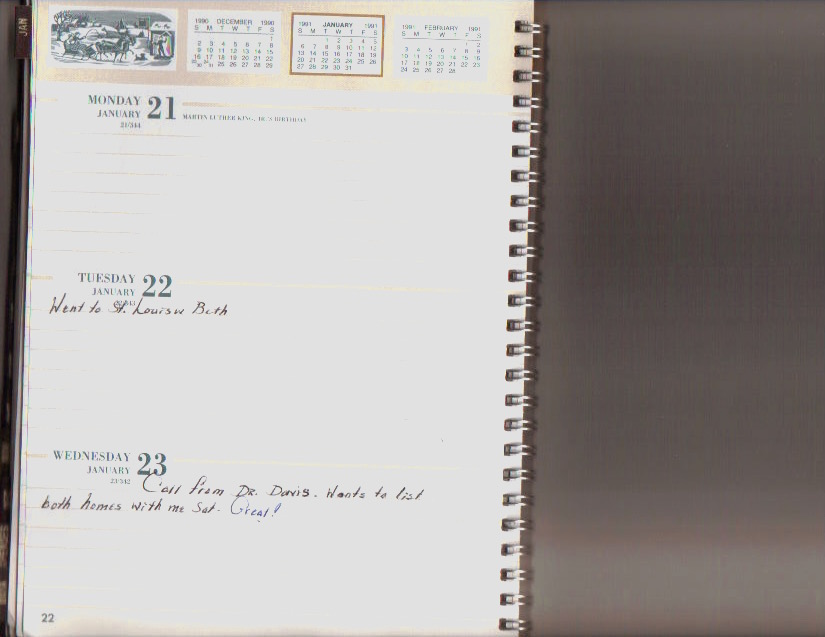 JAN
1990 DECEMBER 1990
S M T W T F S
1
2 3 4 5 6 7 8
9 10 11 12 13 14 15
16 17 18 19 20 21 22
23 30 24 31 25 26 27 28 29
1991 JANUARY 1991
S M T W T F S
1 2 3 4 5
6 7 8 9 10 11 12
13 14 15 16 17 18 19
20 21 22 23 24 25 26
27 28 29 30 31
1991 FEBRUARY 1991
S M T W T F S
1 2
3 4 5 6 7 8 9
10 11 12 13 14 15 16
17 18 19 20 21 22 23
24 25 26 27 28
MONDAY 21
JANUARY
21/344
MARTIN LUTHER KING, JR.'S BIRTHDAY
TUESDAY 22
JANUARY
22/343
Went to St. Louis w Beth
WEDNESDAY 23
JANUARY
23/342
Call from Dr. Davis. Wants to list
both homes with me Sat. Great!
22